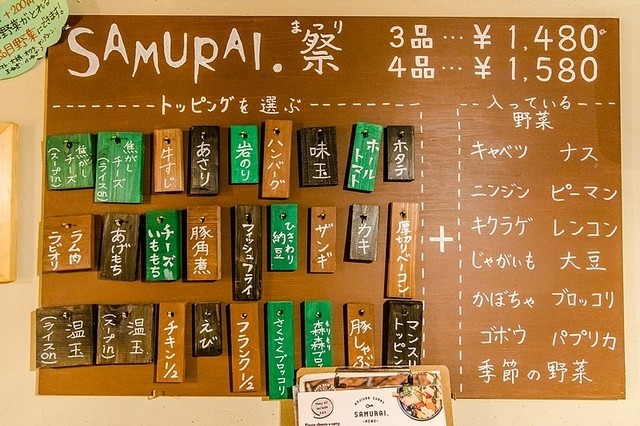 +200円
野菜がとれる
SAMURAI.祭
まつり
3品…¥1,480
4品…¥1,580
トッピングを選ぶ
入っている
野菜
焦がし
チーズ
(スープin)
焦がし
チーズ
(ライスon)
牛すじ
あさり
岩のり
ハンバーグ
味玉
ホール
トマト
ホタテ
ラム肉
ラビオリ
あげもち
チーズ
いももち
豚角煮
フィッシュフライ
ひきわり
納豆
ザンギ
カキ
厚切りベーコン
温玉
(ライスon)
温玉
(スープin)
チキン1/2
えび
フランク1/2
さくさくブロッコリ
もりもり
森森ブロ
豚しゃぶ
マンスリー
トッピン
+
キャベツ ナス
ニンジン ピーマン
キクラゲ レンコン
じゃがいも 大豆
かぼちゃ ブロッコリ
ゴボウ パプリカ
季節の野菜
SAMURAI.
MENU